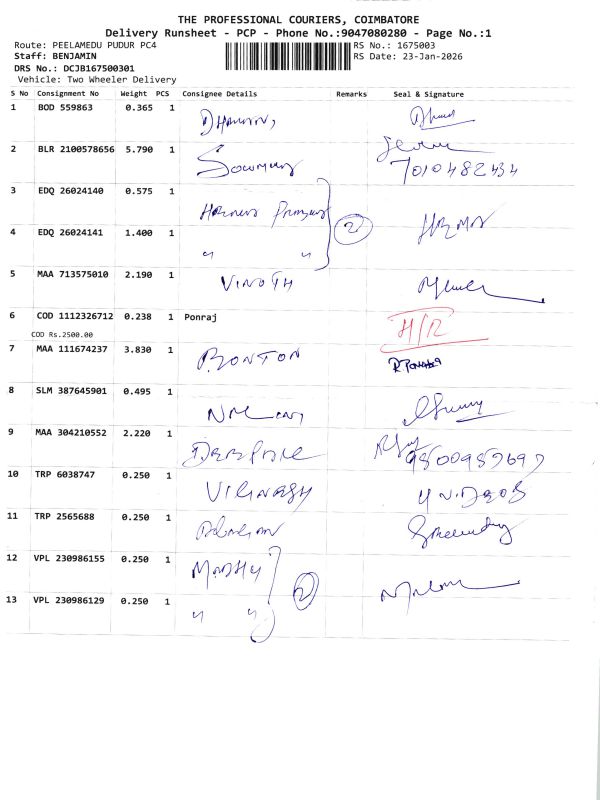 THE PROFESSIONAL COURIERS, COIMBATORE
Delivery Runsheet - PCP - Phone No.:9047080280 - Page No.:1
Route: PEELAMEDU PUDUR PC4 RS No.: 1675003
Staff: BENJAMIN RS Date: 23-Jan-2026
DRS No.: DCJB167500301
Vehicle: Two Wheeler Delivery
S No Consignment No Weight PCS Consignee Details Remarks Seal & Signature
1 BOD 559863 0.365 1
2 BLR 2100578656 5.790 1
7010482434
3 EDQ 26024140 0.575 1
2
4 EDQ 26024141 1.400 1 HEMA
" "
5 MAA 713575010 2.190 1 VINOTH
6 COD 1112326712 0.238 1 Ponraj H/R
COD Rs.2500.00
7 MAA 111674237 3.830 1 BONTON
8 SLM 387645901 0.495 1
9 MAA 304210552 2.220 1
10 TRP 6038747 0.250 1
11 TRP 2565688 0.250 1
12 VPL 230986155 0.250 1 MADHU
2
13 VPL 230986129 0.250 1 " "